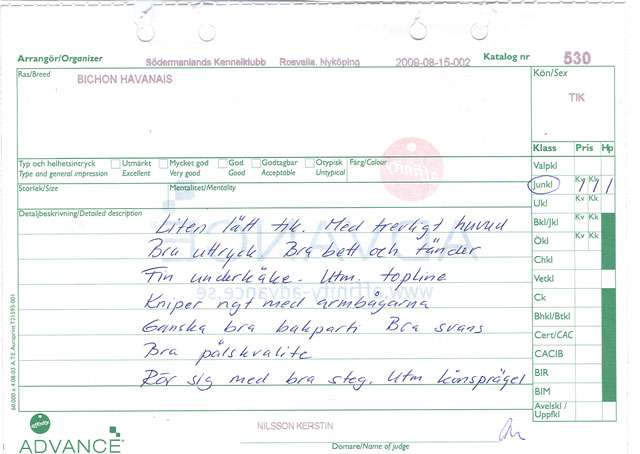 Arrangör/Organizer Södermanlands Kennelklubb Rosvalla, Nyköping 2009-08-15-002 Katalog nr 530
Ras/Breed BICHON HAVANAIS Kön/Sex
TIK
Klass Pris Hp
Typ och helhetsintryck Utmärkt Mycket god God Godtagbar Otypisk Färg/Colour Valpkl
Type and general impression Excellent Very good Good Acceptable Untypical
Junkl Kv 1 Kk 1 1
Storlek/Size Mentalitet/Mentality
Ukl Kv Kk
Detaljbeskrivning/Detailed description
Liten lätt tik. Med trevligt huvud
Bkl/Jkl Kv Kk
Ökl Kv Kk
Bra uttryck. Bra bett och tänder
Chkl
Fin underkäke. Utm. topline
Vetkl
www.affinity-advance.se
Kniper ngt med armbågarna
Ck
Bhkl/Btkl
Ganska bra bakparti Bra svans
Cert/CAC
Bra pälskvalite
CACIB
BIR
Rör sig med bra steg. Utm könsprägel
BIM
Avelskl / Uppfkl
affinity
ADVANCE
NILSSON KERSTIN
Domare/Name of judge